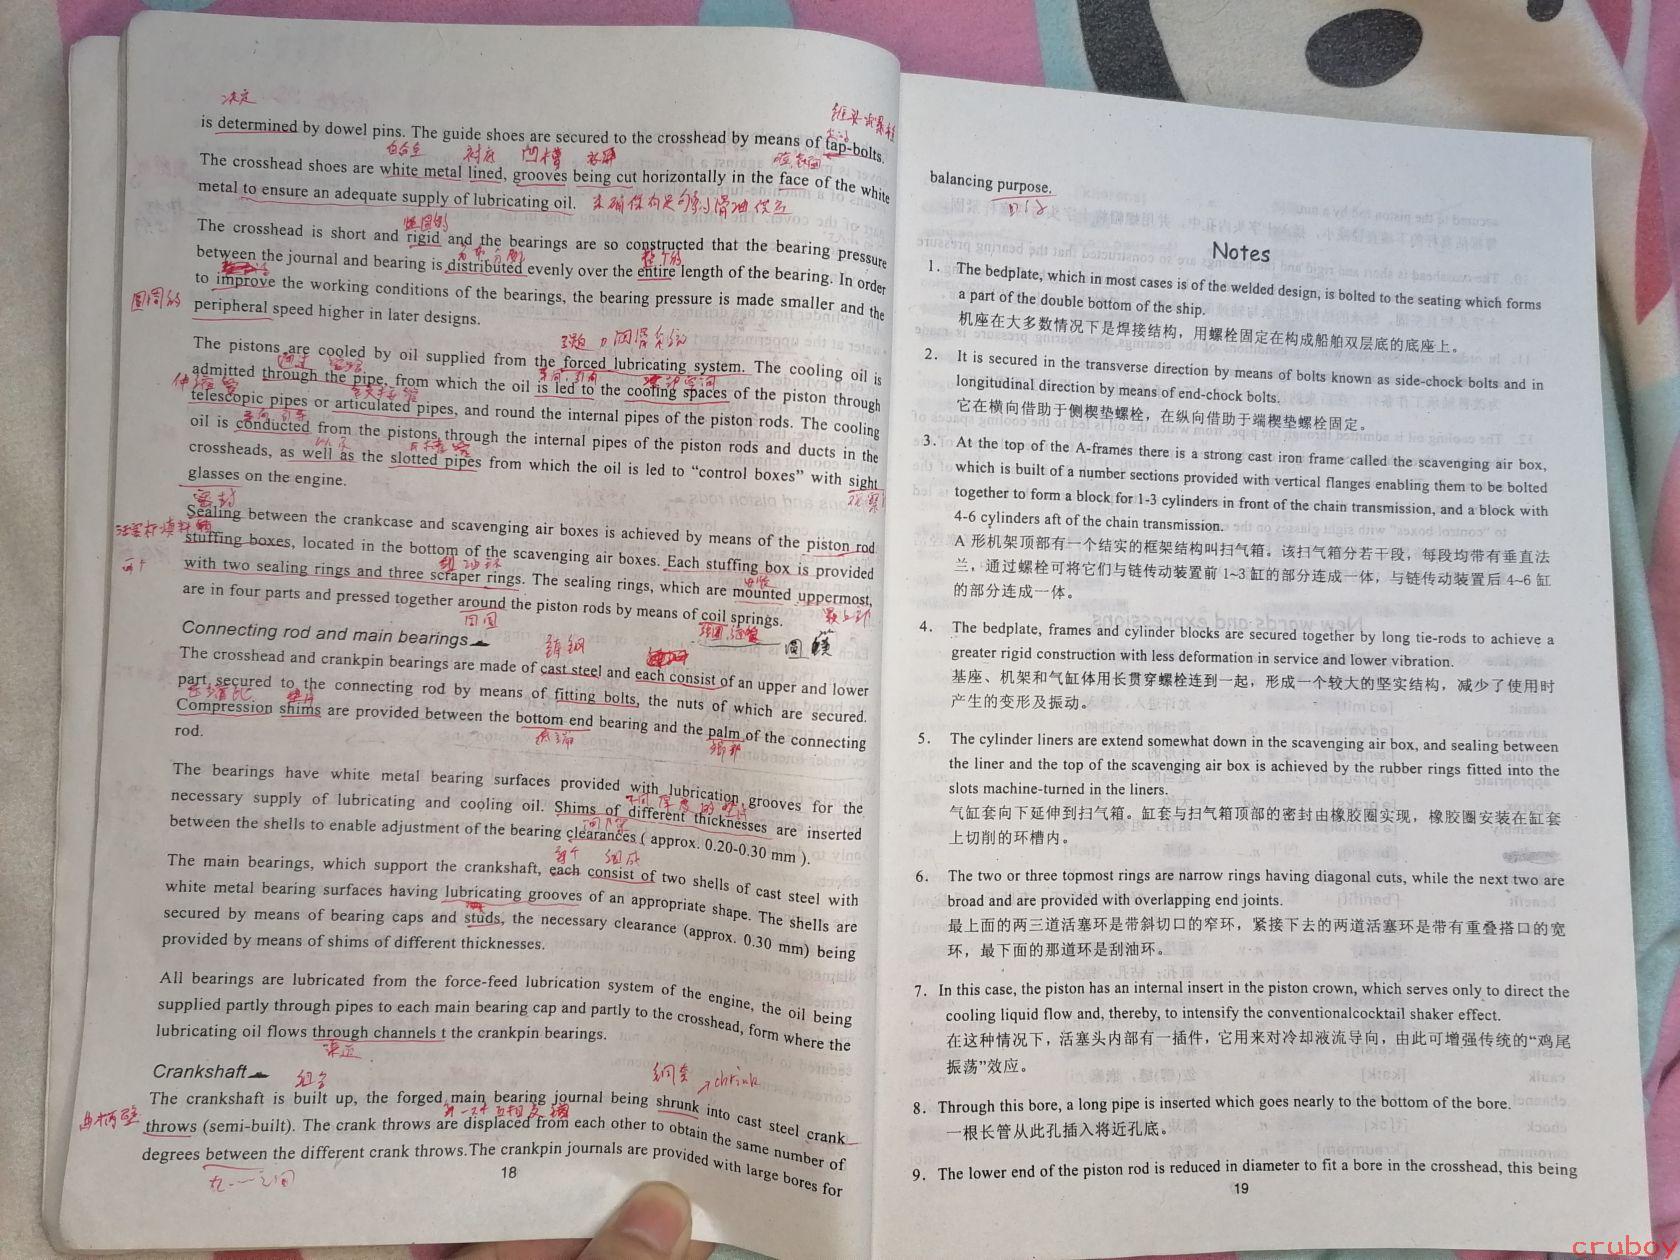 决定
is determined by dowel pins. The guide shoes are secured to the crosshead by means of tap-bolts.
白合金 衬底 凹槽
The crosshead shoes are white metal lined, grooves being cut horizontally in the face of the white
metal to ensure an adequate supply of lubricating oil.
坚固的
The crosshead is short and rigid and the bearings are so constructed that the bearing pressure
整个的
between the journal and bearing is distributed evenly over the entire length of the bearing. In order
to improve the working conditions of the bearings, the bearing pressure is made smaller and the
圆周的
peripheral speed higher in later designs.
The pistons are cooled by oil supplied from the forced lubricating system. The cooling oil is
admitted through the pipe, from which the oil is led to the cooling spaces of the piston through
伸缩管
telescopic pipes or articulated pipes, and round the internal pipes of the piston rods. The cooling
oil is conducted from the pistons through the internal pipes of the piston rods and ducts in the
crossheads, as well as the slotted pipes from which the oil is led to “control boxes” with sight
glasses on the engine.
密封
Sealing between the crankcase and scavenging air boxes is achieved by means of the piston rod
stuffing boxes, located in the bottom of the scavenging air boxes. Each stuffing box is provided
刮油环
with two sealing rings and three scraper rings. The sealing rings, which are mounted uppermost,
are in four parts and pressed together around the piston rods by means of coil springs.
Connecting rod and main bearings
铸钢
The crosshead and crankpin bearings are made of cast steel and each consist of an upper and lower
part, secured to the connecting rod by means of fitting bolts, the nuts of which are secured.
垫片
Compression shims are provided between the bottom end bearing and the palm of the connecting
rod.
The bearings have white metal bearing surfaces provided with lubrication grooves for the
不同厚度的垫片
necessary supply of lubricating and cooling oil. Shims of different thicknesses are inserted
between the shells to enable adjustment of the bearing clearances ( approx. 0.20-0.30 mm ).
每个 组成
The main bearings, which support the crankshaft, each consist of two shells of cast steel with
white metal bearing surfaces having lubricating grooves of an appropriate shape. The shells are
secured by means of bearing caps and studs, the necessary clearance (approx. 0.30 mm) being
provided by means of shims of different thicknesses.
All bearings are lubricated from the force-feed lubrication system of the engine, the oil being
supplied partly through pipes to each main bearing cap and partly to the crosshead, form where the
lubricating oil flows through channels t the crankpin bearings.
Crankshaft
组合
shrink
The crankshaft is built up, the forged main bearing journal being shrunk into cast steel crank
曲柄臂
throws (semi-built). The crank throws are displaced from each other to obtain the same number of
degrees between the different crank throws.The crankpin journals are provided with large bores for
18
balancing purpose.
目的
Notes
1. The bedplate, which in most cases is of the welded design, is bolted to the seating which forms
a part of the double bottom of the ship.
机座在大多数情况下是焊接结构，用螺栓固定在构成船舶双层底的底座上。
2. It is secured in the transverse direction by means of bolts known as side-chock bolts and in
longitudinal direction by means of end-chock bolts.
它在横向借助于侧楔垫螺栓，在纵向借助于端楔垫螺栓固定。
3. At the top of the A-frames there is a strong cast iron frame called the scavenging air box,
which is built of a number sections provided with vertical flanges enabling them to be bolted
together to form a block for 1-3 cylinders in front of the chain transmission, and a block with
4-6 cylinders aft of the chain transmission.
A 形机架顶部有一个结实的框架结构叫扫气箱。该扫气箱分若干段，每段均带有垂直法
兰，通过螺栓可将它们与链传动装置前 1~3 缸的部分连成一体，与链传动装置后 4~6 缸
的部分连成一体。
4. The bedplate, frames and cylinder blocks are secured together by long tie-rods to achieve a
greater rigid construction with less deformation in service and lower vibration.
基座、机架和气缸体用长贯穿螺栓连到一起，形成一个较大的坚实结构，减少了使用时
产生的变形及振动。
5. The cylinder liners are extend somewhat down in the scavenging air box, and sealing between
the liner and the top of the scavenging air box is achieved by the rubber rings fitted into the
slots machine-turned in the liners.
气缸套向下延伸到扫气箱。缸套与扫气箱顶部的密封由橡胶圈实现，橡胶圈安装在缸套
上切削的环槽内。
6. The two or three topmost rings are narrow rings having diagonal cuts, while the next two are
broad and are provided with overlapping end joints.
最上面的两三道活塞环是带斜切口的窄环，紧接下去的两道活塞环是带有重叠搭口的宽
环，最下面的那道环是刮油环。
7. In this case, the piston has an internal insert in the piston crown, which serves only to direct the
cooling liquid flow and, thereby, to intensify the conventionalcocktail shaker effect.
在这种情况下，活塞头内部有一插件，它用来对冷却液流导向，由此可增强传统的“鸡尾
振荡”效应。
8. Through this bore, a long pipe is inserted which goes nearly to the bottom of the bore.
一根长管从此孔插入将近孔底。
9. The lower end of the piston rod is reduced in diameter to fit a bore in the crosshead, this being
19
cruboy